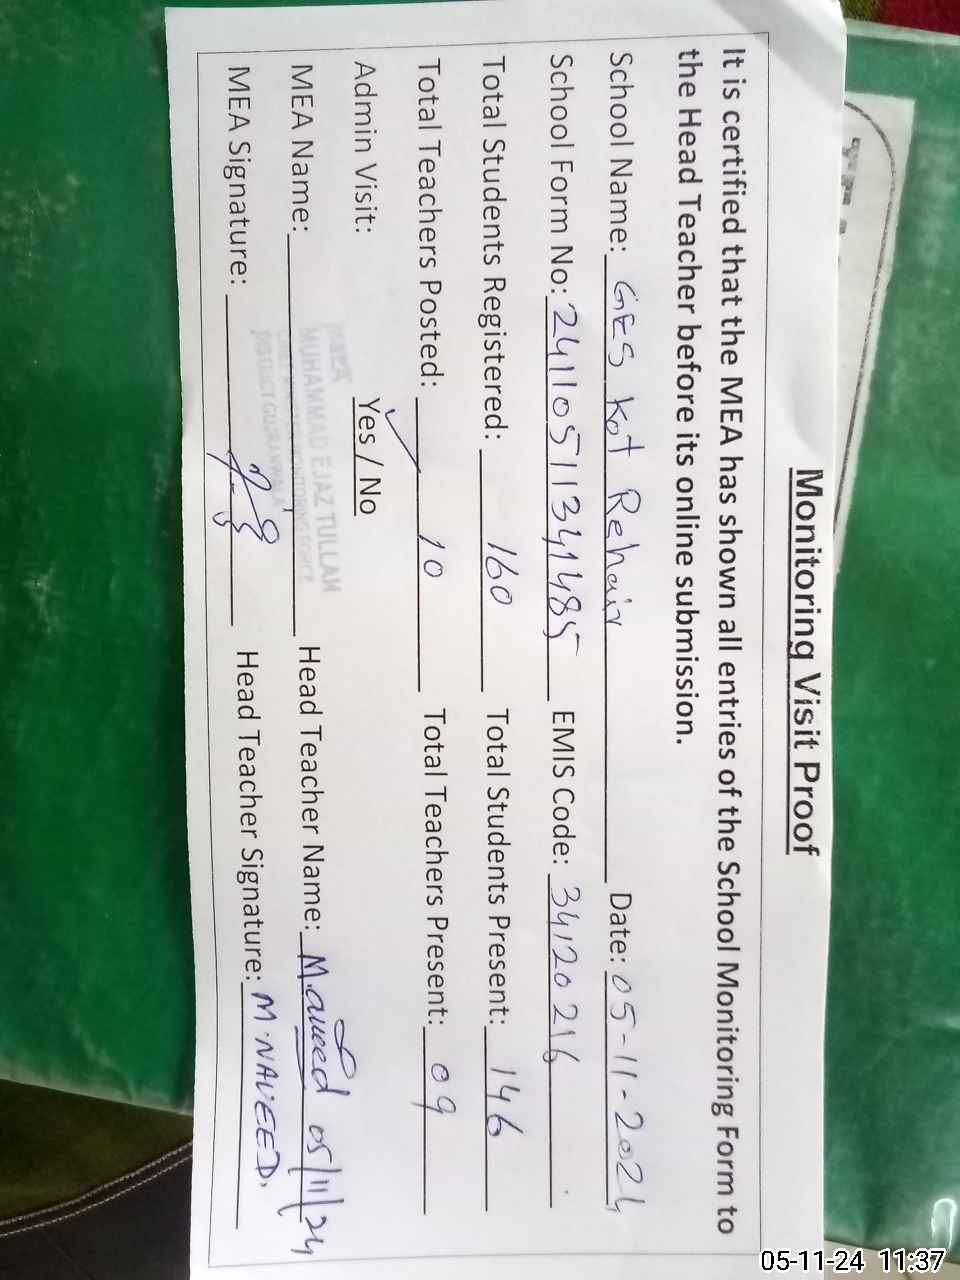 Monitoring Visit Proof
It is certified that the MEA has shown all entries of the School Monitoring Form to
the Head Teacher before its online submission.
School Name: GES Kot Rehair Date: 05-11-2024
School Form No: 24110511341485 EMIS Code: 34120216
Total Students Registered: 160 Total Students Present: 146
Total Teachers Posted: 10 Total Teachers Present: 09
Admin Visit: Yes / No
MUHAMMAD EJAZ TULLAH
MEA Name: Head Teacher Name: 05/11/24
DISTRICT GUJRANWALA
MEA Signature: Head Teacher Signature: M.NAVEED.
05-11-24 11:37